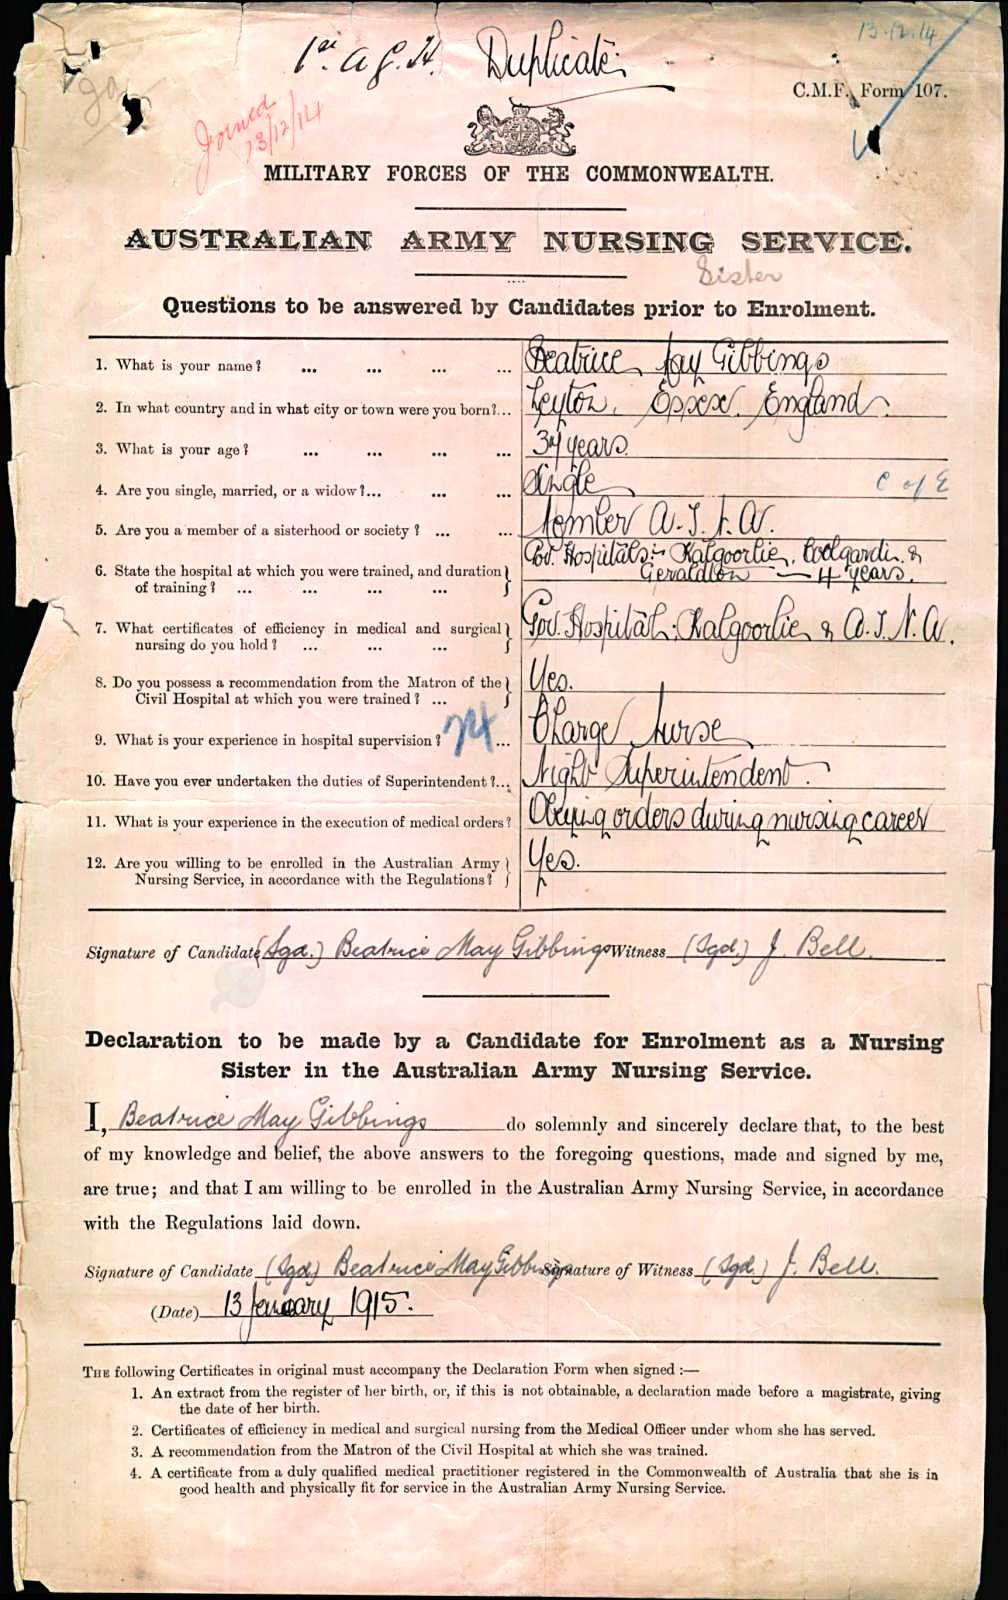 13.12.14
1st A G. H. Duplicate
C.M.F. Form 107.
Joined
13/12/14
MILITARY FORCES OF THE COMMONWEALTH.
AUSTRALIAN ARMY NURSING SERVICE.
Sister
Questions to be answered by Candidates prior to Enrolment.
1. What is your name? ... ... ... ... Beatrice May Gibbings
2. In what country and in what city or town were you born?... Leyton, Essex, England.
3. What is your age? ... ... ... ... years.
4. Are you single, married, or a widow?... ... ... Single C of E
5. Are you a member of a sisterhood or society? ... ... Member A.T.N.A.
6. State the hospital at which you were trained, and duration Gov. Hospitals:- Kalgoorlie, Coolgardie &
of training? ... ... ... ... Geraldton — 4 years.
7. What certificates of efficiency in medical and surgical Gov. Hospital: Kalgoorlie & A.T.N.A.
nursing do you hold? ... ... ...
8. Do you possess a recommendation from the Matron of the Yes.
Civil Hospital at which you were trained? ...
9. What is your experience in hospital supervision? ... Charge Nurse
10. Have you ever undertaken the duties of Superintendent?... Night Superintendent.
11. What is your experience in the execution of medical orders? Obeying orders during nursing career
12. Are you willing to be enrolled in the Australian Army Yes.
Nursing Service, in accordance with the Regulations?
Signature of Candidate (Sgd.) Beatrice May Gibbings Witness (Sgd.) J. Bell.
Declaration to be made by a Candidate for Enrolment as a Nursing
Sister in the Australian Army Nursing Service.
I, Beatrice May Gibbings do solemnly and sincerely declare that, to the best
of my knowledge and belief, the above answers to the foregoing questions, made and signed by me,
are true; and that I am willing to be enrolled in the Australian Army Nursing Service, in accordance
with the Regulations laid down.
Signature of Candidate (Sgd) Beatrice May Gibbings Signature of Witness (Sgd.) J. Bell.
(Date) 13 January 1915.
THE following Certificates in original must accompany the Declaration Form when signed :—
1. An extract from the register of her birth, or, if this is not obtainable, a declaration made before a magistrate, giving
the date of her birth.
2. Certificates of efficiency in medical and surgical nursing from the Medical Officer under whom she has served.
3. A recommendation from the Matron of the Civil Hospital at which she was trained.
4. A certificate from a duly qualified medical practitioner registered in the Commonwealth of Australia that she is in
good health and physically fit for service in the Australian Army Nursing Service.